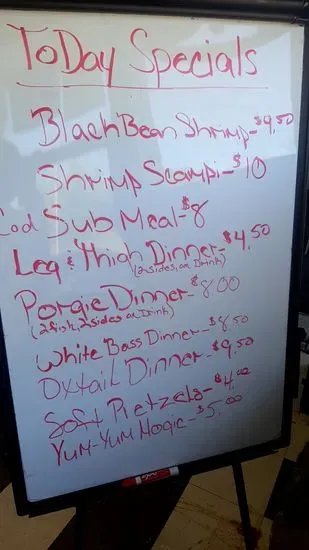 ToDay Specials
Blach Bean Shrimp-$9.50
Shrimp Scampi-$10
Cod Sub Meal-$8
Leg & Thigh Dinner-$4.50
(2 sides, or Drink)
Porgie Dinner-$8.00
(2 fish, 2 sides or Drink)
White Bass Dinner-$8.50
Oxtail Dinner-$9.50
Soft Pretzels-$4.00
Yum-Yum Hogie-$5.00